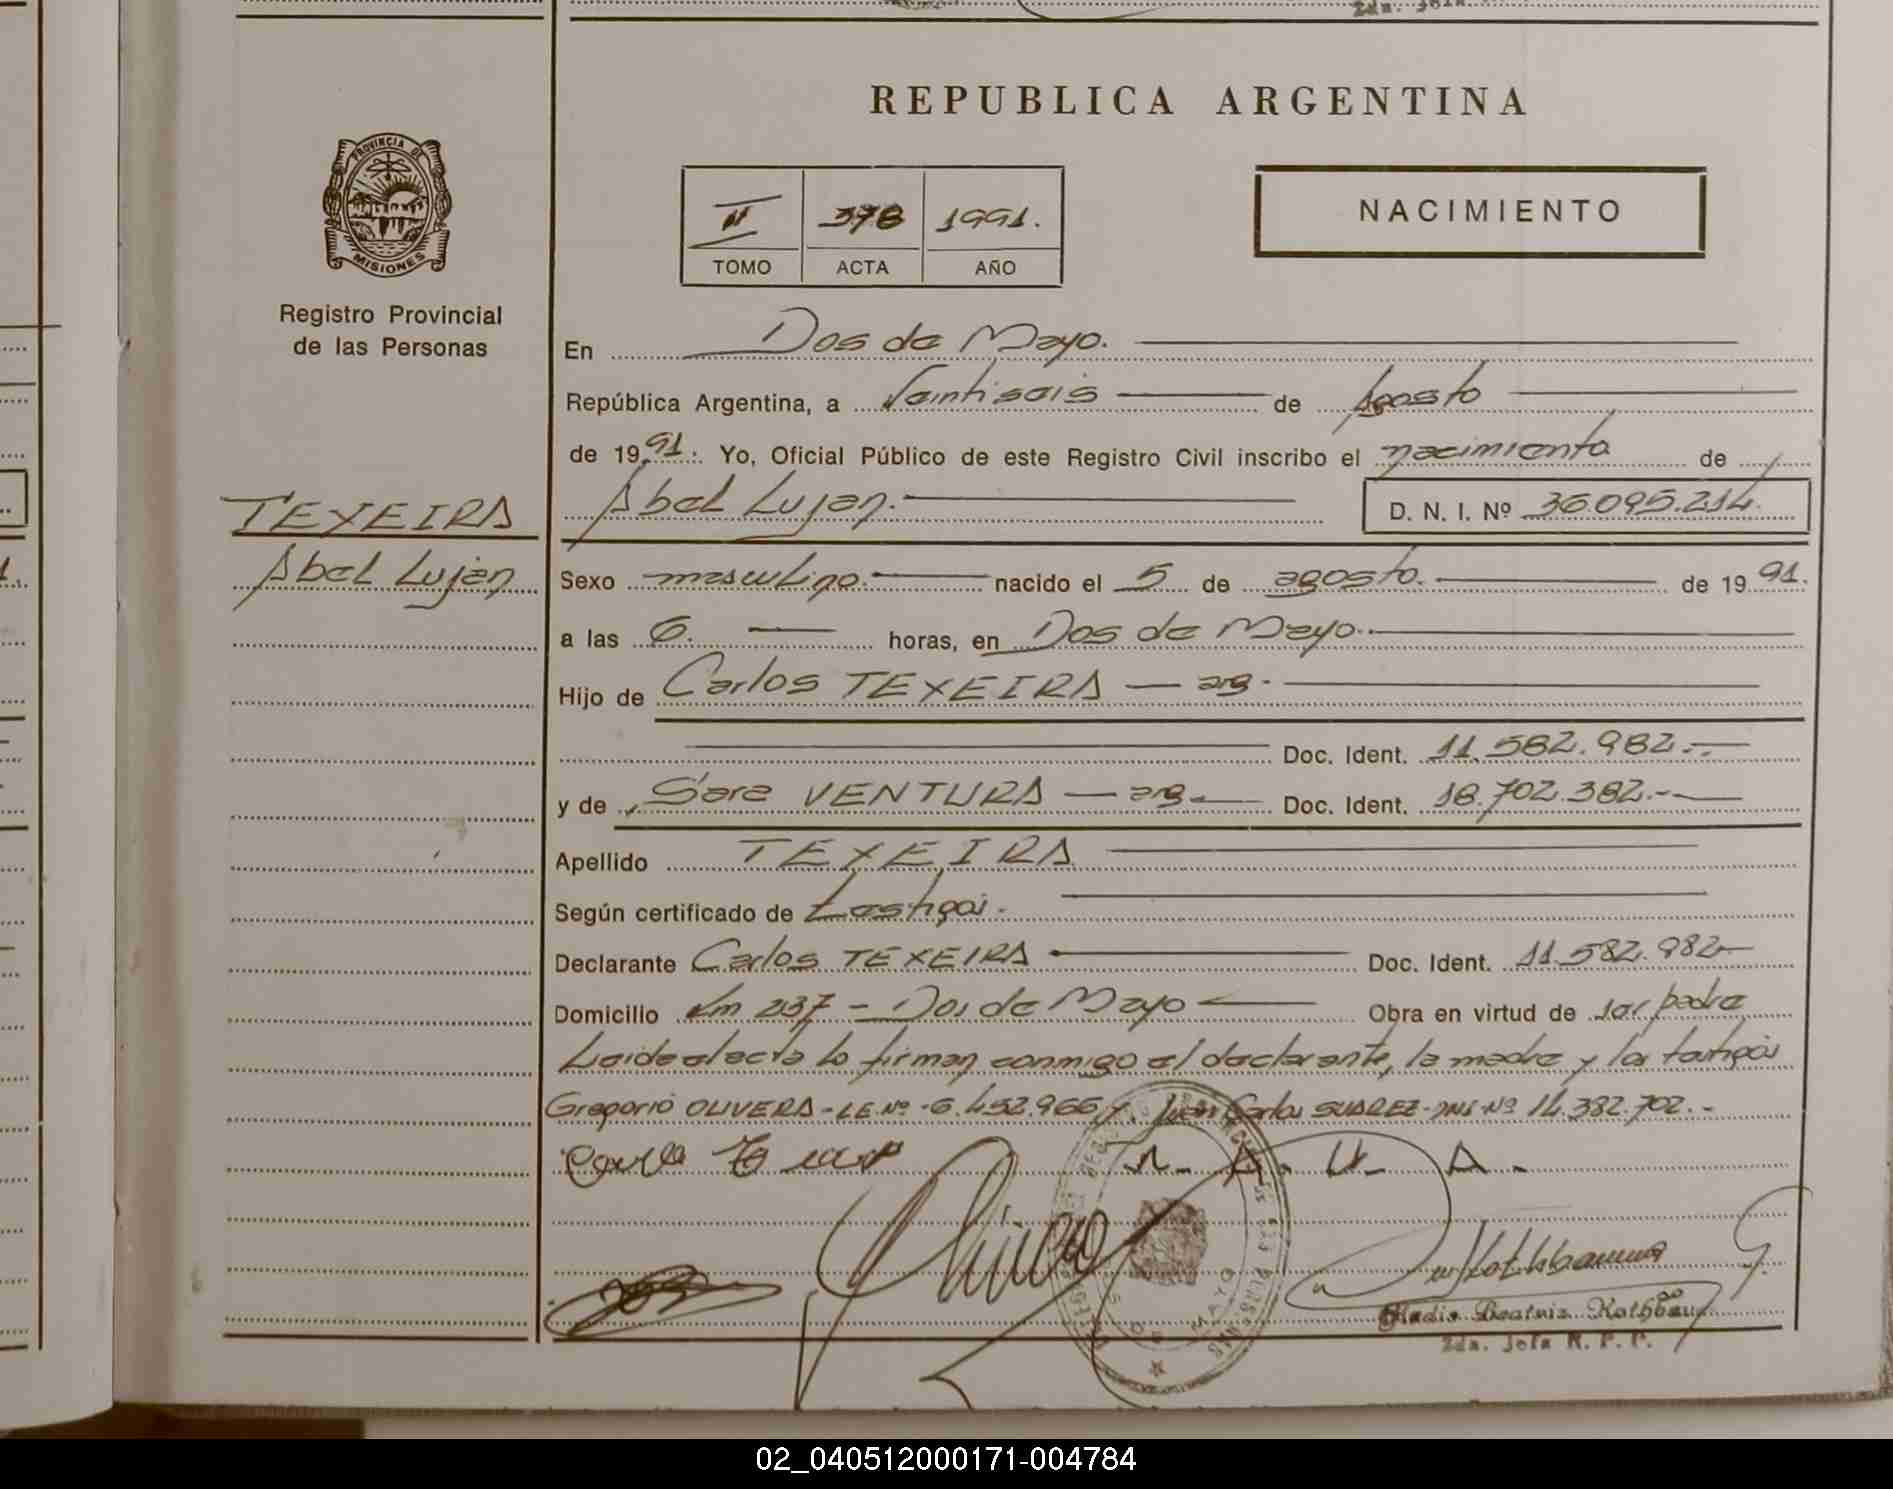 REPUBLICA ARGENTINA
PROVINCIA DE
MISIONES
Registro Provincial
de las Personas
II 378 1991.
TOMO ACTA AÑO
NACIMIENTO
En Dos de Mayo.
República Argentina, a Veintiseis de Agosto
de 1991. Yo, Oficial Público de este Registro Civil inscribo el nacimiento de
Abel Luján. D. N. I. Nº 36.095.214.
TEXEIRA
Abel Luján
Sexo masculino. nacido el 5 de agosto. de 1991.
a las 6. horas, en Dos de Mayo.
Hijo de Carlos TEXEIRA — arg.
Doc. Ident. 11.582.982.-
y de Sara VENTURA — arg. Doc. Ident. 18.702.382.-
Apellido TEXEIRA
Según certificado de Testigos.
Declarante Carlos TEXEIRA Doc. Ident. 11.582.982-
Domicilio Km 237 - Dos de Mayo Obra en virtud de ser padre
Leida el acta la firman conmigo el declarante, la madre y los testigos
Gregorio OLIVERA - LE.Nº - 6.452.966 y Juan Carlos SUAREZ - DNI-Nº 14.382.702.-
Gladis Beatriz Rothbau
2da. Jefa R. P. P.
02_040512000171-004784